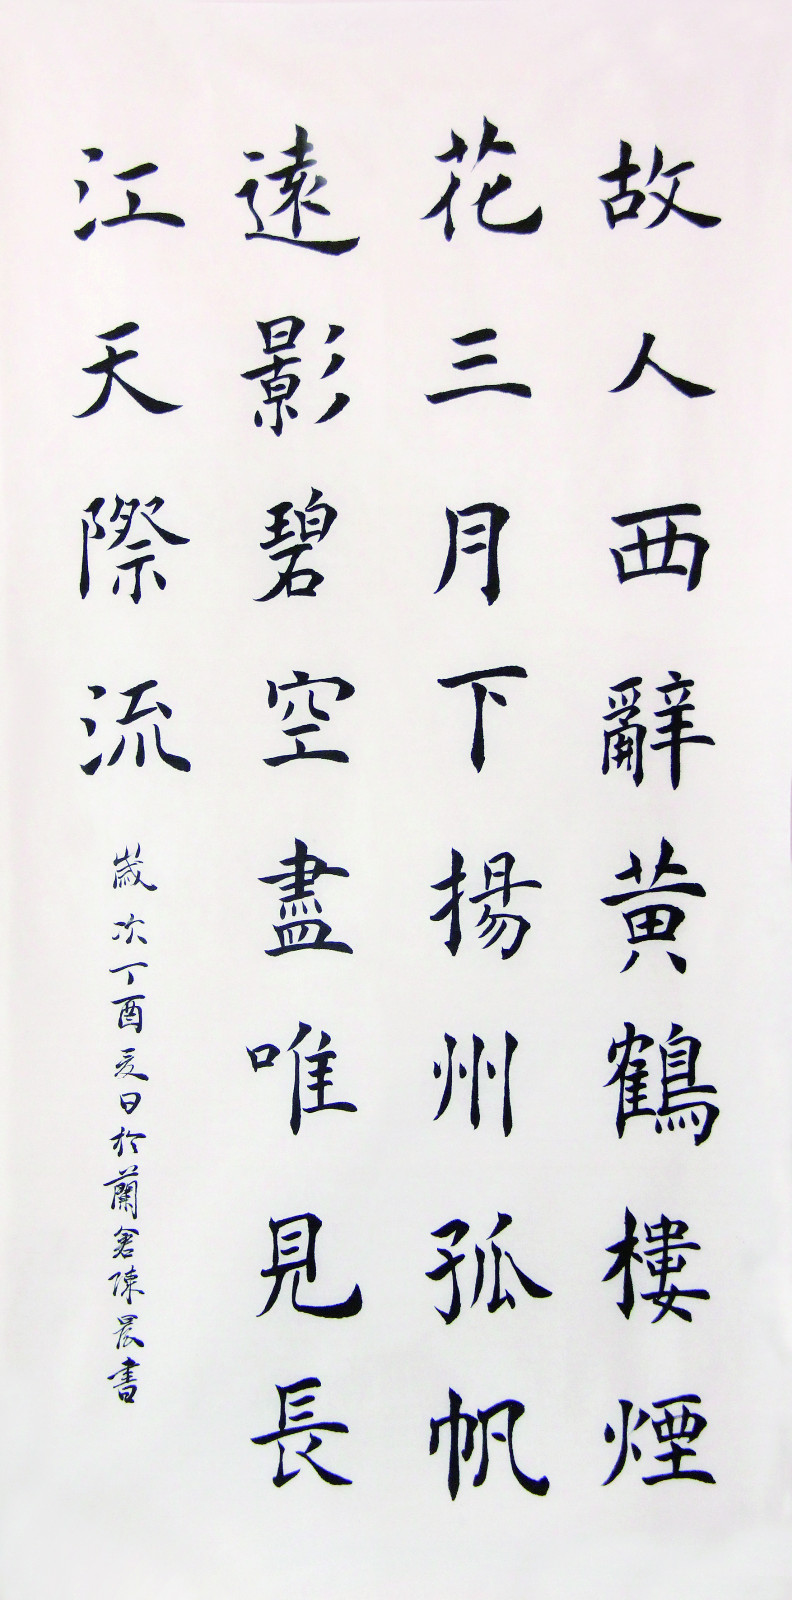 故人西辭黃鶴樓煙
花三月下揚州孤帆
遠影碧空盡唯見長
江天際流
歲次丁酉夏日於蘭倉陳晨書